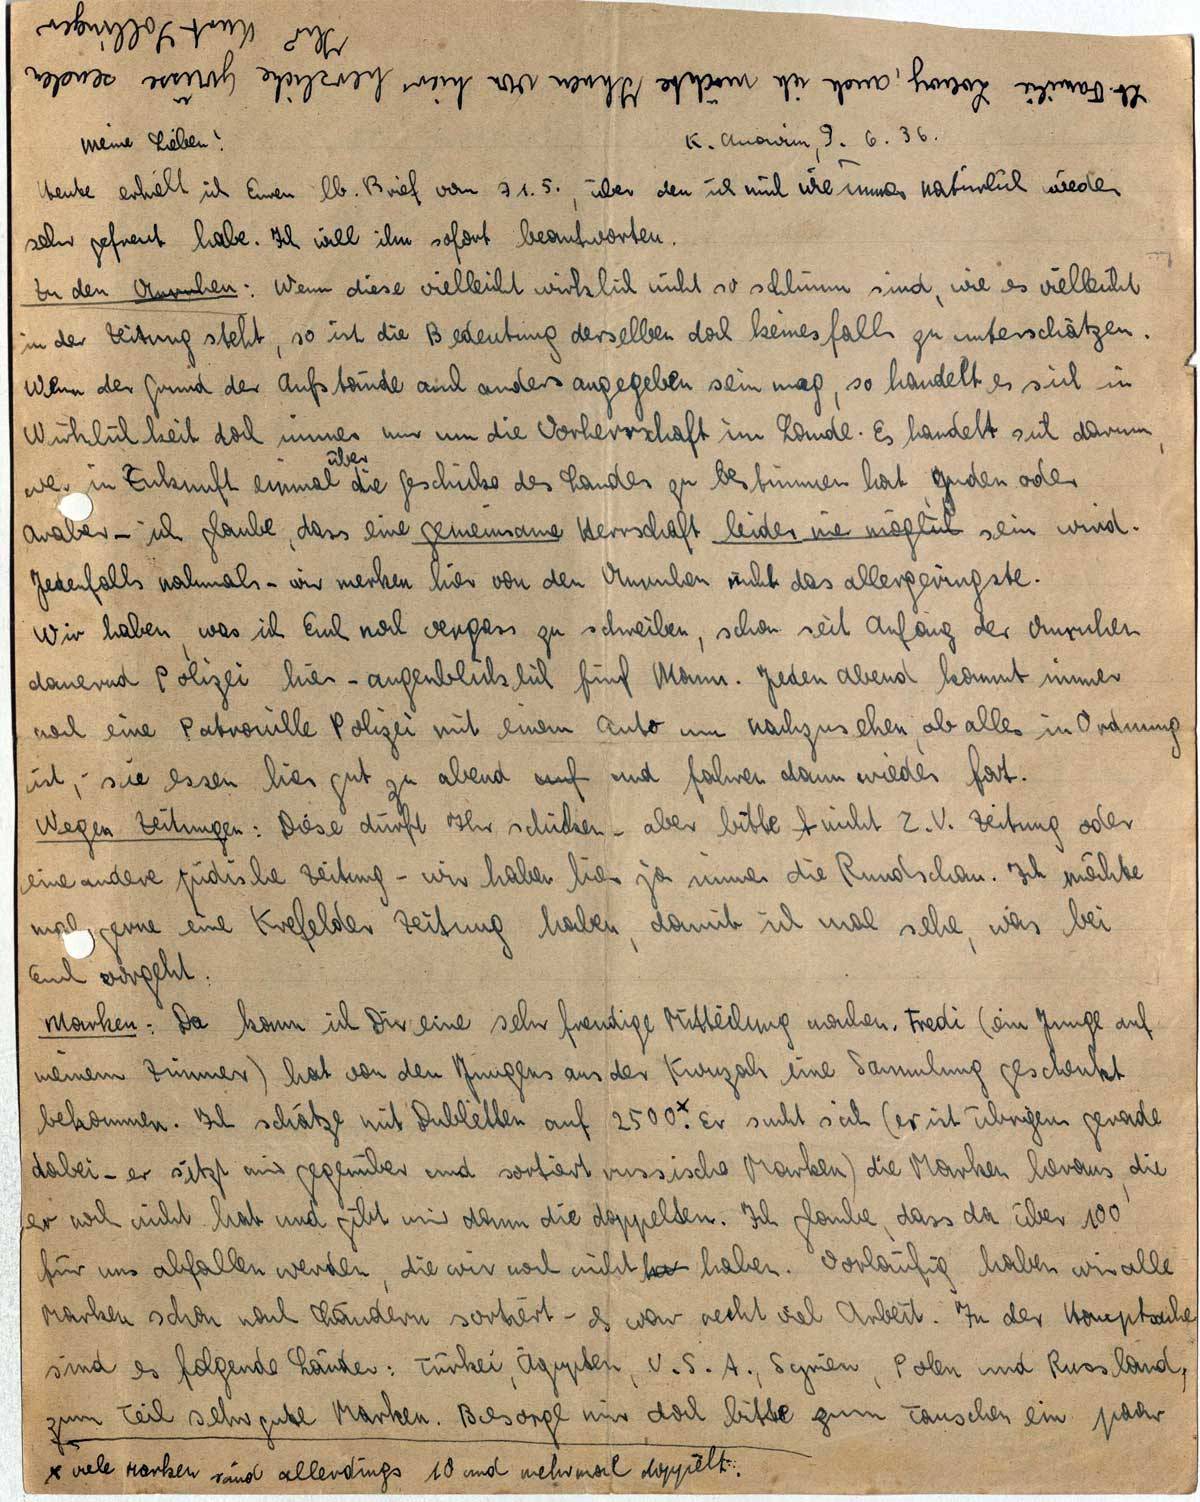 Lb. Familie Loewy, auch ich möchte Ihnen von hier herzliche Grüsse senden
Ihr Kurt
Meine Lieben! K. Anavim, 9. 6. 36.
Heute erhielt ich Euren lb. Brief vom 31.5., über den ich mich wie immer natürlich wieder
sehr gefreut habe. Ich will ihn sofort beantworten.
Zu den Unruhen: Wenn diese vielleicht wirklich nicht so schlimm sind, wie es vielleicht
in der Zeitung steht, so ist die Bedeutung derselben doch keinesfalls zu unterschätzen.
Wenn der Grund der Aufstände auch anders angegeben sein mag, so handelt es sich in
Wirklichkeit doch immer nur um die Vorherrschaft im Lande. Es handelt sich darum,
wer in Zukunft einmal über die Geschicke des Landes zu bestimmen hat, Juden oder
Araber – ich glaube, dass eine gemeinsame Herrschaft leider nie möglich sein wird.
Jedenfalls nochmals – wir merken hier von den Unruhen nicht das allergeringste.
Wir haben, was ich Euch noch vergass zu schreiben, schon seit Anfang der Unruhen
dauernd Polizei hier – augenblicklich fünf Mann. Jeden Abend kommt immer
noch eine Patrouille Polizei mit einem Auto um nachzusehen, ob alles in Ordnung
ist, – sie essen hier gut zu abend und fahren dann wieder fort.
Wegen Zeitungen: Diese dürft Ihr schicken – aber bitte nicht C.V. Zeitung oder
eine andere jüdische Zeitung – wir haben hier ja immer die Rundschau. Ich möchte
mal gerne eine Krefelder Zeitung haben, damit ich mal sehe, was bei
Euch vorgeht.
Marken: Da kann ich Dir eine sehr freudige Mitteilung machen. Fredi (ein Junge auf
meinem Zimmer) hat von den Jungens aus der Kwuzah eine Sammlung geschenkt
bekommen. Ich schätze mit Dubletten auf 2500.x Er sucht sich (er ist übrigens gerade
dabei – er sitzt mir gegenüber und sortiert russische Marken) die Marken heraus, die
er noch nicht hat und gibt mir dann die doppelten. Ich glaube, dass da über 100
für uns abfallen werden, die wir noch nicht haben. Vorläufig haben wir alle
Marken schon nach Ländern sortiert – es war recht viel Arbeit. In der Hauptsache
sind es folgende Länder: Türkei, Ägypten, U.S.A., Syrien, Polen und Russland,
zum Teil sehr gute Marken. Besorge mir doch bitte zum Tauschen ein paar
x viele Marken sind allerdings 10 und mehrmal doppelt.